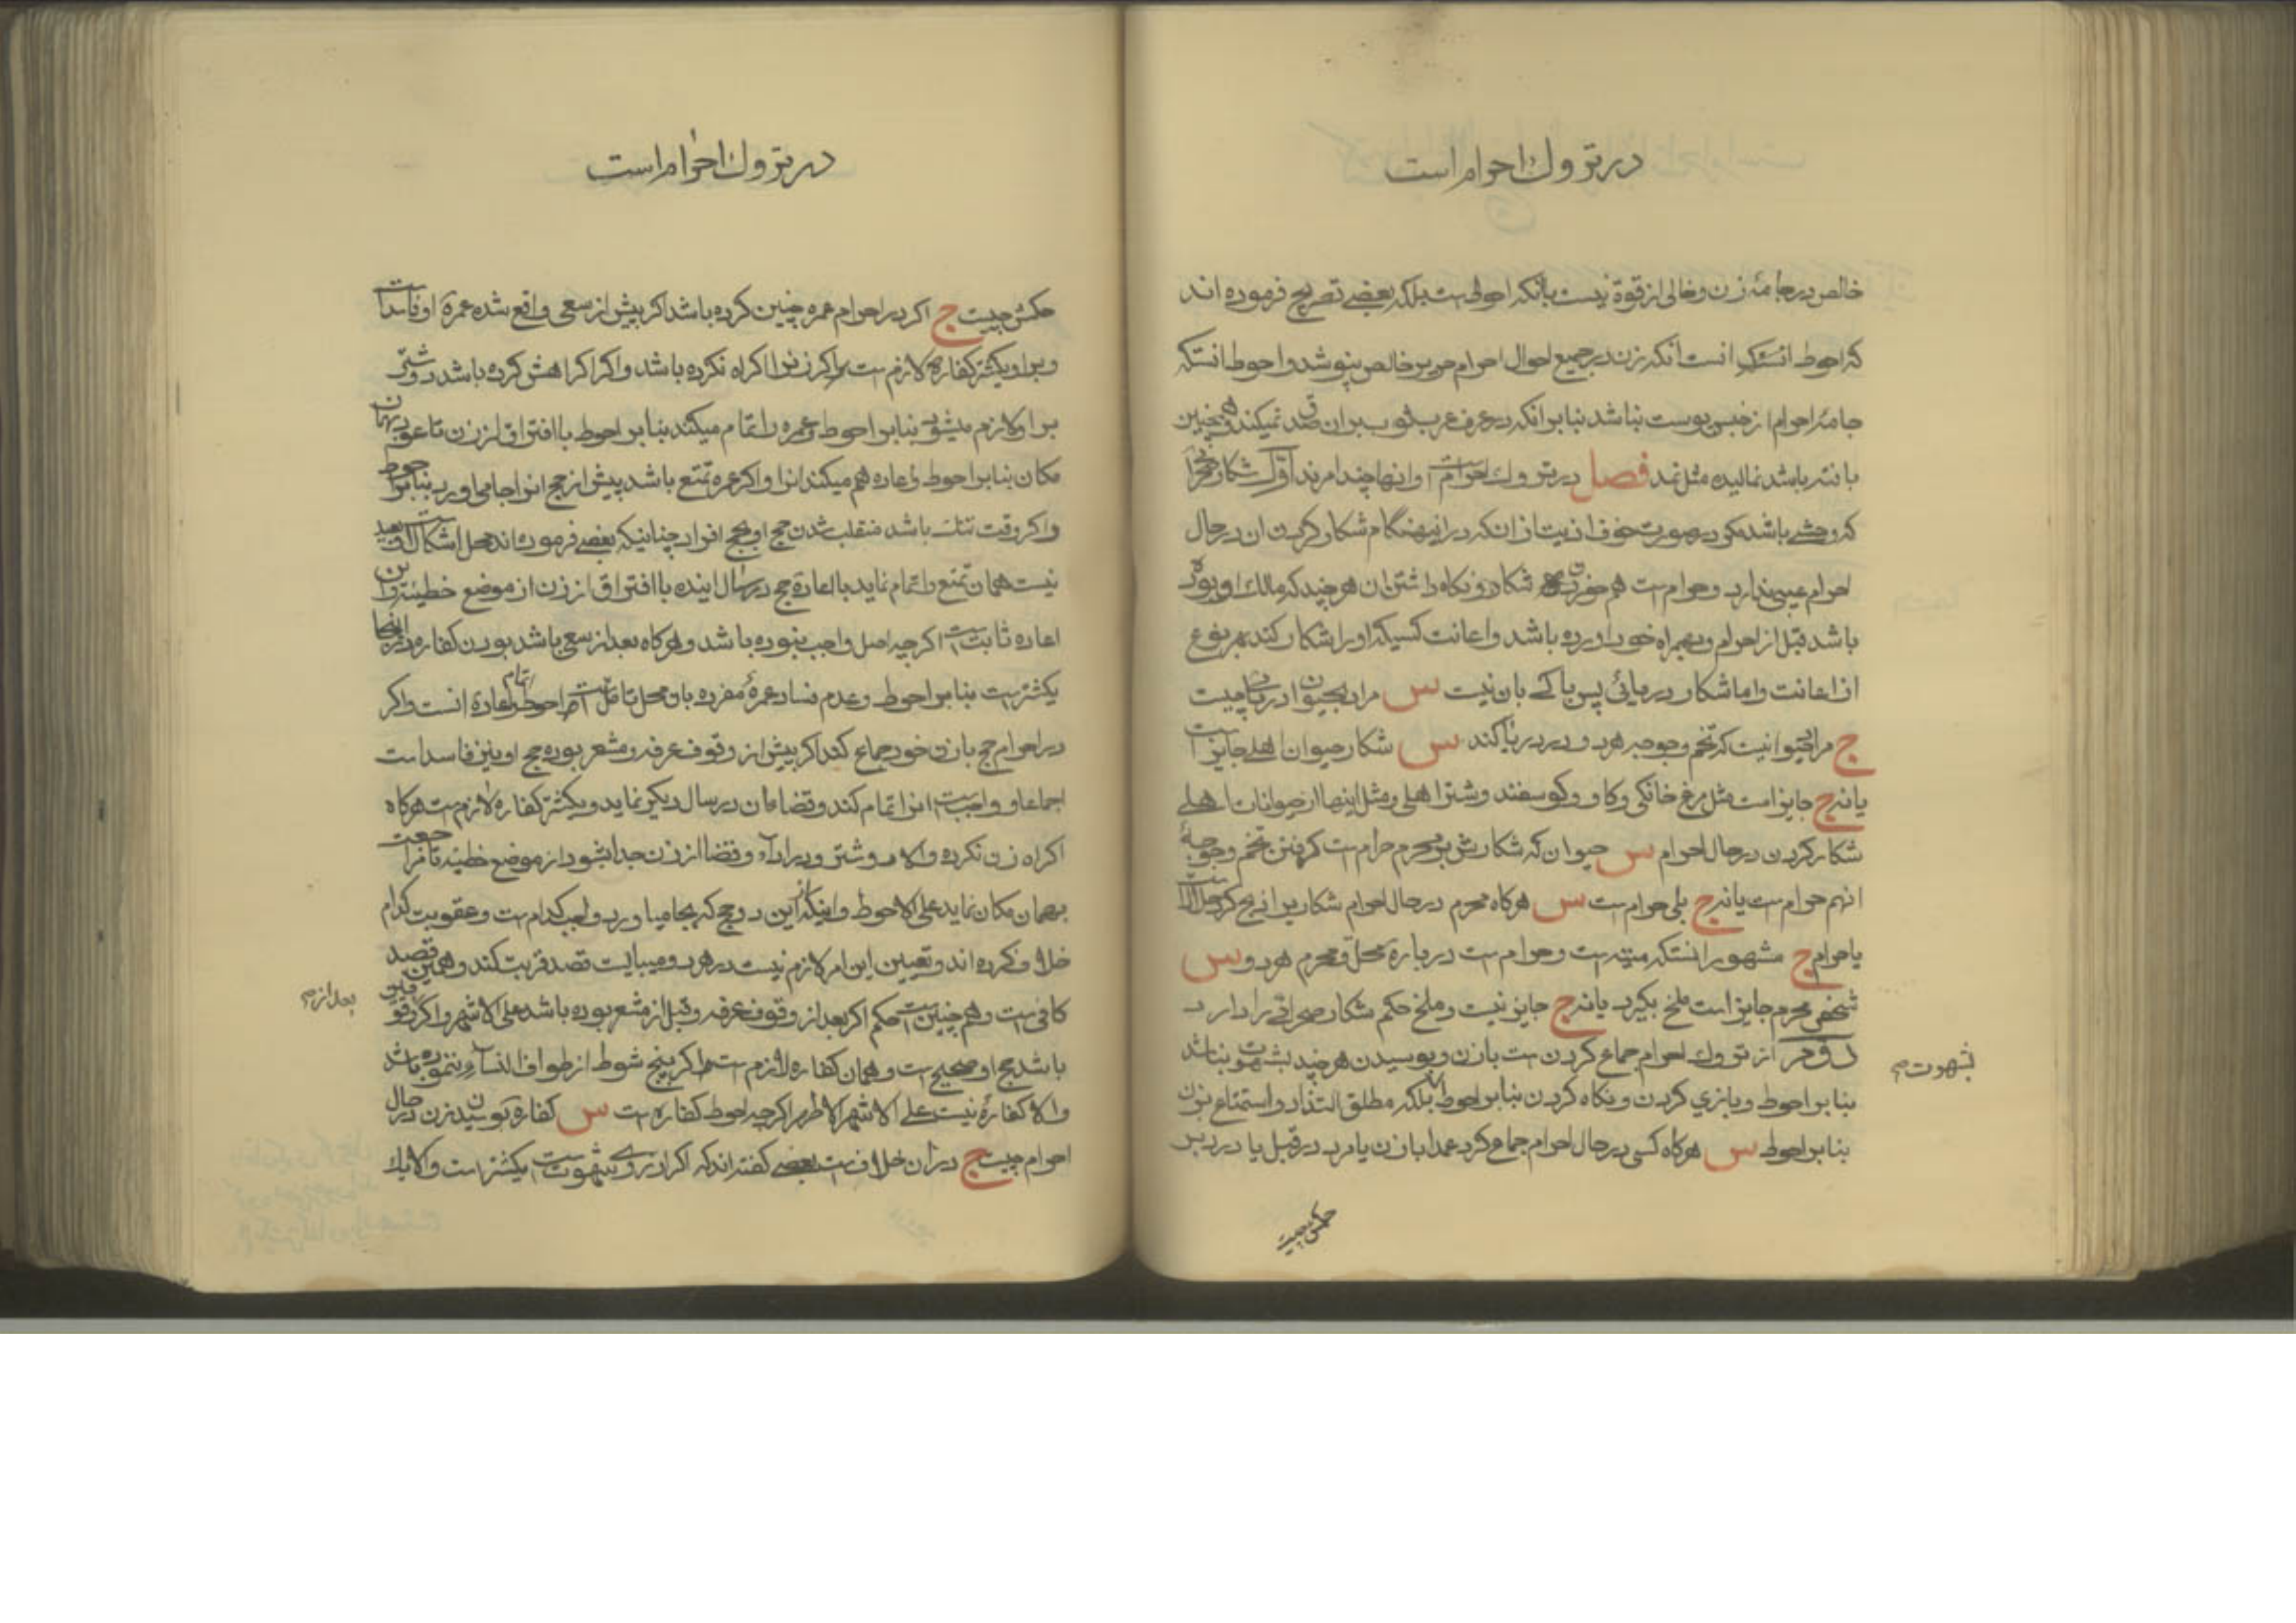 در تروك احرام است
خالص در جامهٔ زن و خالی از قوة نیست با آنکه احوط است بلکه بعضی تصریح فرموده اند
که احوط آنست که زن در جمیع احوال احرام حریر خالص نپوشد و احوط آنستکه
جامهٔ احرام از جنس پوست نباشد بنا بر آنکه در عرف عرب ثوب بر آن صدق نمیکند و همچنین
باشد نمالیده مثل نمد فصل در تروك احرام است و آنها چند امرند اوّل شکار
که وحشی باشد مکر در صورت خوف اذیت از آنکه در اینهنکام شکار کردن آن در حال
احرام عیبی ندارد و حرام است هم خوردن شکار و نکاه داشتن آن هر چند که مالك او بوده
باشد قبل از احرام و همراه خود آورده باشد و اعانت کسیکه او را شکار کند بهر نوع
از اعانت و اما شکار دریائی پس باکی بان نیست س مراد بحیوان دریائی چیست
ج مراد حیوانیست که تخم و جوجه هر دو در دریا کند س شکار حیوان اهلی جایز است
یا نه ج جایز است مثل مرغ خانکی و کاو و کوسفند و شتر اهلی و مثل اینها از حیوانات اهلی
شکار کردن در حال احرام س حیوان که شکارش بر محرم حرام است کرفتن تخم و جوجهٔ
آنهم حرام است یا نه ج بلی حرام است س هرکاه محرم در حال احرام شکار را ذبح کرد حلال است
یا حرام ج مشهور آنستکه میته است و حرام است در بارهٔ محلّ و محرم هر دو س
شخص محرم جایز است ملخ بکیرد یا نه ج جایز نیست و ملخ حکم شکار صحرائی را دارد
دوّم از تروك احرام جماع کردن است با زن و بوسیدن هر چند بشهوت نباشد
بنا بر احوط و بازی کردن و نکاه کردن بنا بر احوط بلکه مطلق التذاذ و استمتاع بزن
بنا بر احوط س هرکاه کسی در حال احرام جماع کرد عمدا با زن یا مرد در قبل یا در دبر
بشهوت
حکمش چیست
در تروك احرام است
حکمش چیست ج اکر در احرام عمره چنین کرده باشد اکر پیش از سعی واقع شده عمرهٔ او فاسد است
و بر او یکشتر کفاره لازم است اکر زنرا اکراه نکرده باشد و اکر اکراهش کرده باشد دو شتر
بر او لازم میشود بنا بر احوط و عمره را تمام میکند بنا بر احوط با افتراق از زن تا عود بهمان
مکان بنا بر احوط و اعاده هم میکند آنرا و اکر عمره تمتع باشد پیش از حج آنرا بجا می آورد بنا بر احوط
و اکر وقت تنك باشد منقلب شدن حج او بحج افراد چنانکه بعضی فرموده اند محل اشکال است و بعید
نیست همان تمتع را تمام نماید با اعادهٔ حج در سال آینده با افتراق از زن از موضع خطیئه و این
اعاده ثابت است اکر چه اصل واجب نبوده باشد و هرکاه بعد از سعی باشد بودن کفاره در اینجا
یکشتر است بنا بر احوط و عدم فساد عمرهٔ مفرده بان محل تامّل است احوط اتمام و اعادهٔ آنست و اکر
در احرام حج با زن خود جماع کند اکر پیش از وقوف عرفه و مشعر بوده حج او نیز فاسد است
اجماعا و واجب است آنرا تمام کند و قضاء آن در سال دیکر نماید و یکشتر کفاره لازم است هرکاه
اکراه زن نکرده و الا دو شتر و در اداء و قضا از زن جدا بشود از موضع خطیئه تا مراجعت
بهمان مکان نماید علی الاحوط و اینکه از این دو حج که بجا میاورد واجب کدام است و عقوبت کدام
خلاف کرده اند و تعیین این امر لازم نیست در هر دو میبایست قصد قربت کند و همین قصد
کافی است و همچنین است حکم اکر بعد از وقوف عرفه و قبل از مشعر بوده باشد علی الاشهر و اکر وقوفین
باشد حج او صحیح است و همان کفاره لازم است اکر پنج شوط از طواف النساء ننموده باشد
و الا کفارهٔ نیست علی الاشهر الاظهر اکر چه احوط کفاره است س کفارهٔ بوسیدن زن در حال
احرام چیست ج در آن خلاف است بعضی کفته اند که اکر از روی شهوت است یکشتر است و الا یك
بعد از